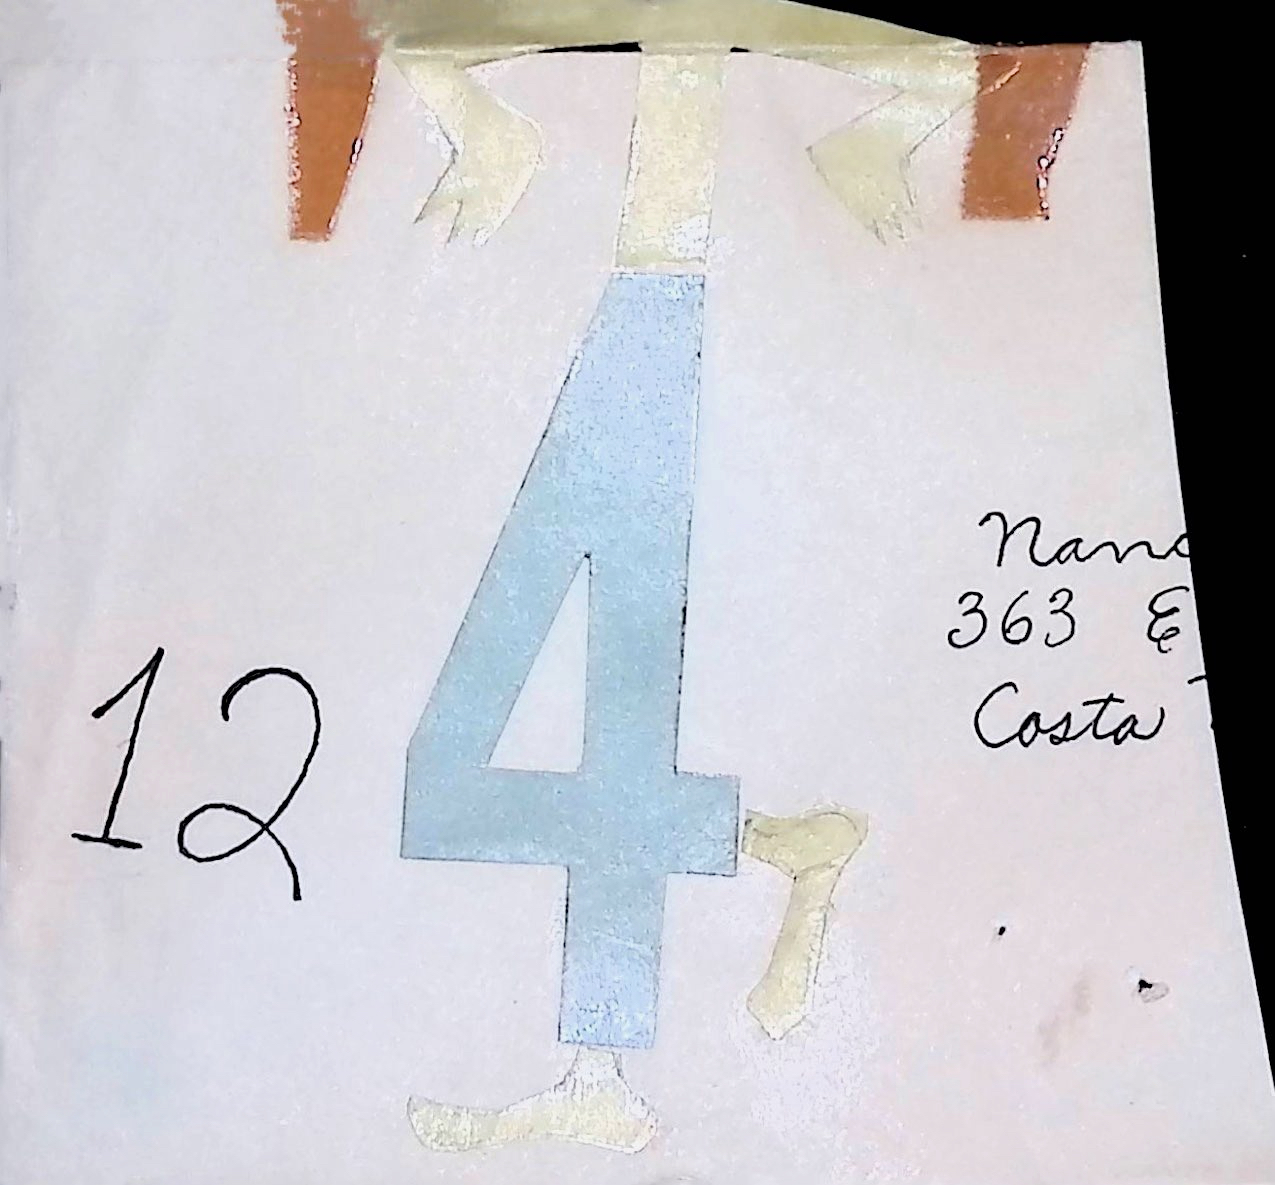 4
12
Nanc
363 E
Costa